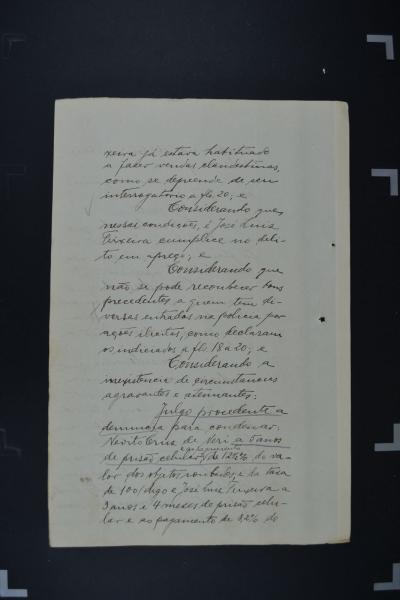 xeira já estava habituado
a fazer vendas clandestinas,
como se deprehende de seu
interrogatorio a fls. 20; e
Considerando que,
nessas condições, é José Luiz
Teixeira cumplice no deli-
to em apreço; e
Considerando que
não se pode reconhecer bons
precedentes a quem tem di-
versas entradas na policia por
acções illicitas, como declararam
os indiciados a fls. 18 a 20; e
Considerando a
inexistencia de circunstancias
agravantes e attenuantes:
Julgo procedente a
denuncia para condemnar:
de Neri a 5 annos
e ao pagamento
de prisão cellular, de 12 1/2% do va-
lor dos objetos roubados, e da taxa
de 100$ e José Luiz Teixeira a
3 anos e 4 meses de prisão cellu-
lar e ao pagamento de 8 1/2% do